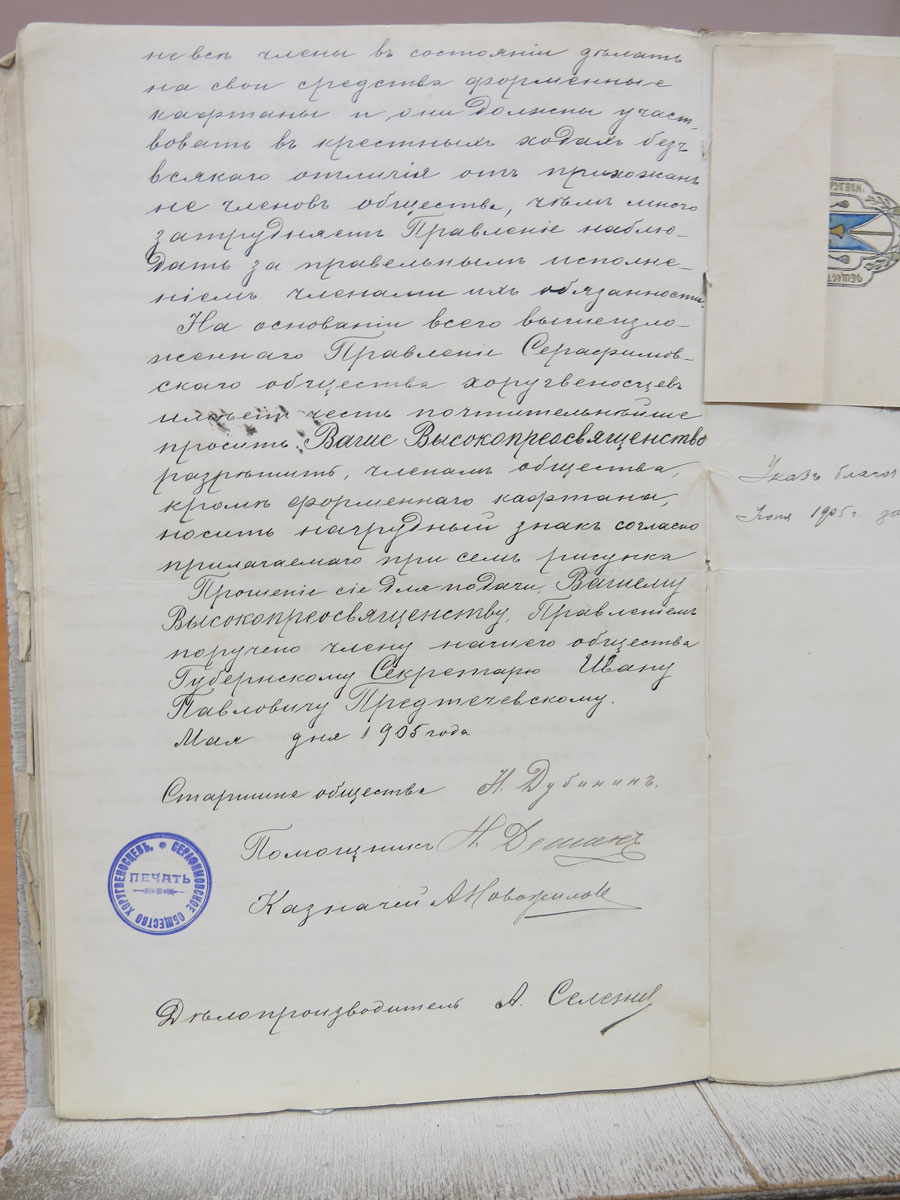 не всѣ члены въ состоянiи дѣлать
на свои средства форменные
кафтаны и они должны участ-
вовать въ крестныхъ ходахъ безъ
всякаго отличiя отъ прихожанъ
не членовъ общества, чѣмъ много
затрудняетъ Правленiе наблю-
дать за правельнымъ исполне-
нiемъ членами ихъ обязанности.
На основанiи всего вышеизло-
женнаго Правленiе Серафимов-
скаго общества хоругвеносцевъ
имѣетъ честь почтительнѣйше
просить Ваше Высокопреосвященство
разрѣшить, членамъ общества,
кромѣ форменнаго кафтана,
носить нагрудный знакъ согласно
прилагаемаго при семъ рисунка
Прошенiе сiе для подачи, Вашему
Высокопреосвященству, Правленiемъ
поручено члену нашего общества
Губернскому Секретарю Ивану
Павловичу Предтечевскому.
Мая дня 1905 года
Старшине общества Н. Дубининъ.
Помощникъ Н.
Казначей А Новожилов
Дѣлопроизводитель А.
СЕРАФИМОВСКОЕ ОБЩЕСТВО ХОРУГВЕНОСЦЕВЪ.
ПЕЧАТЬ
Указъ благоч
1905 г. за